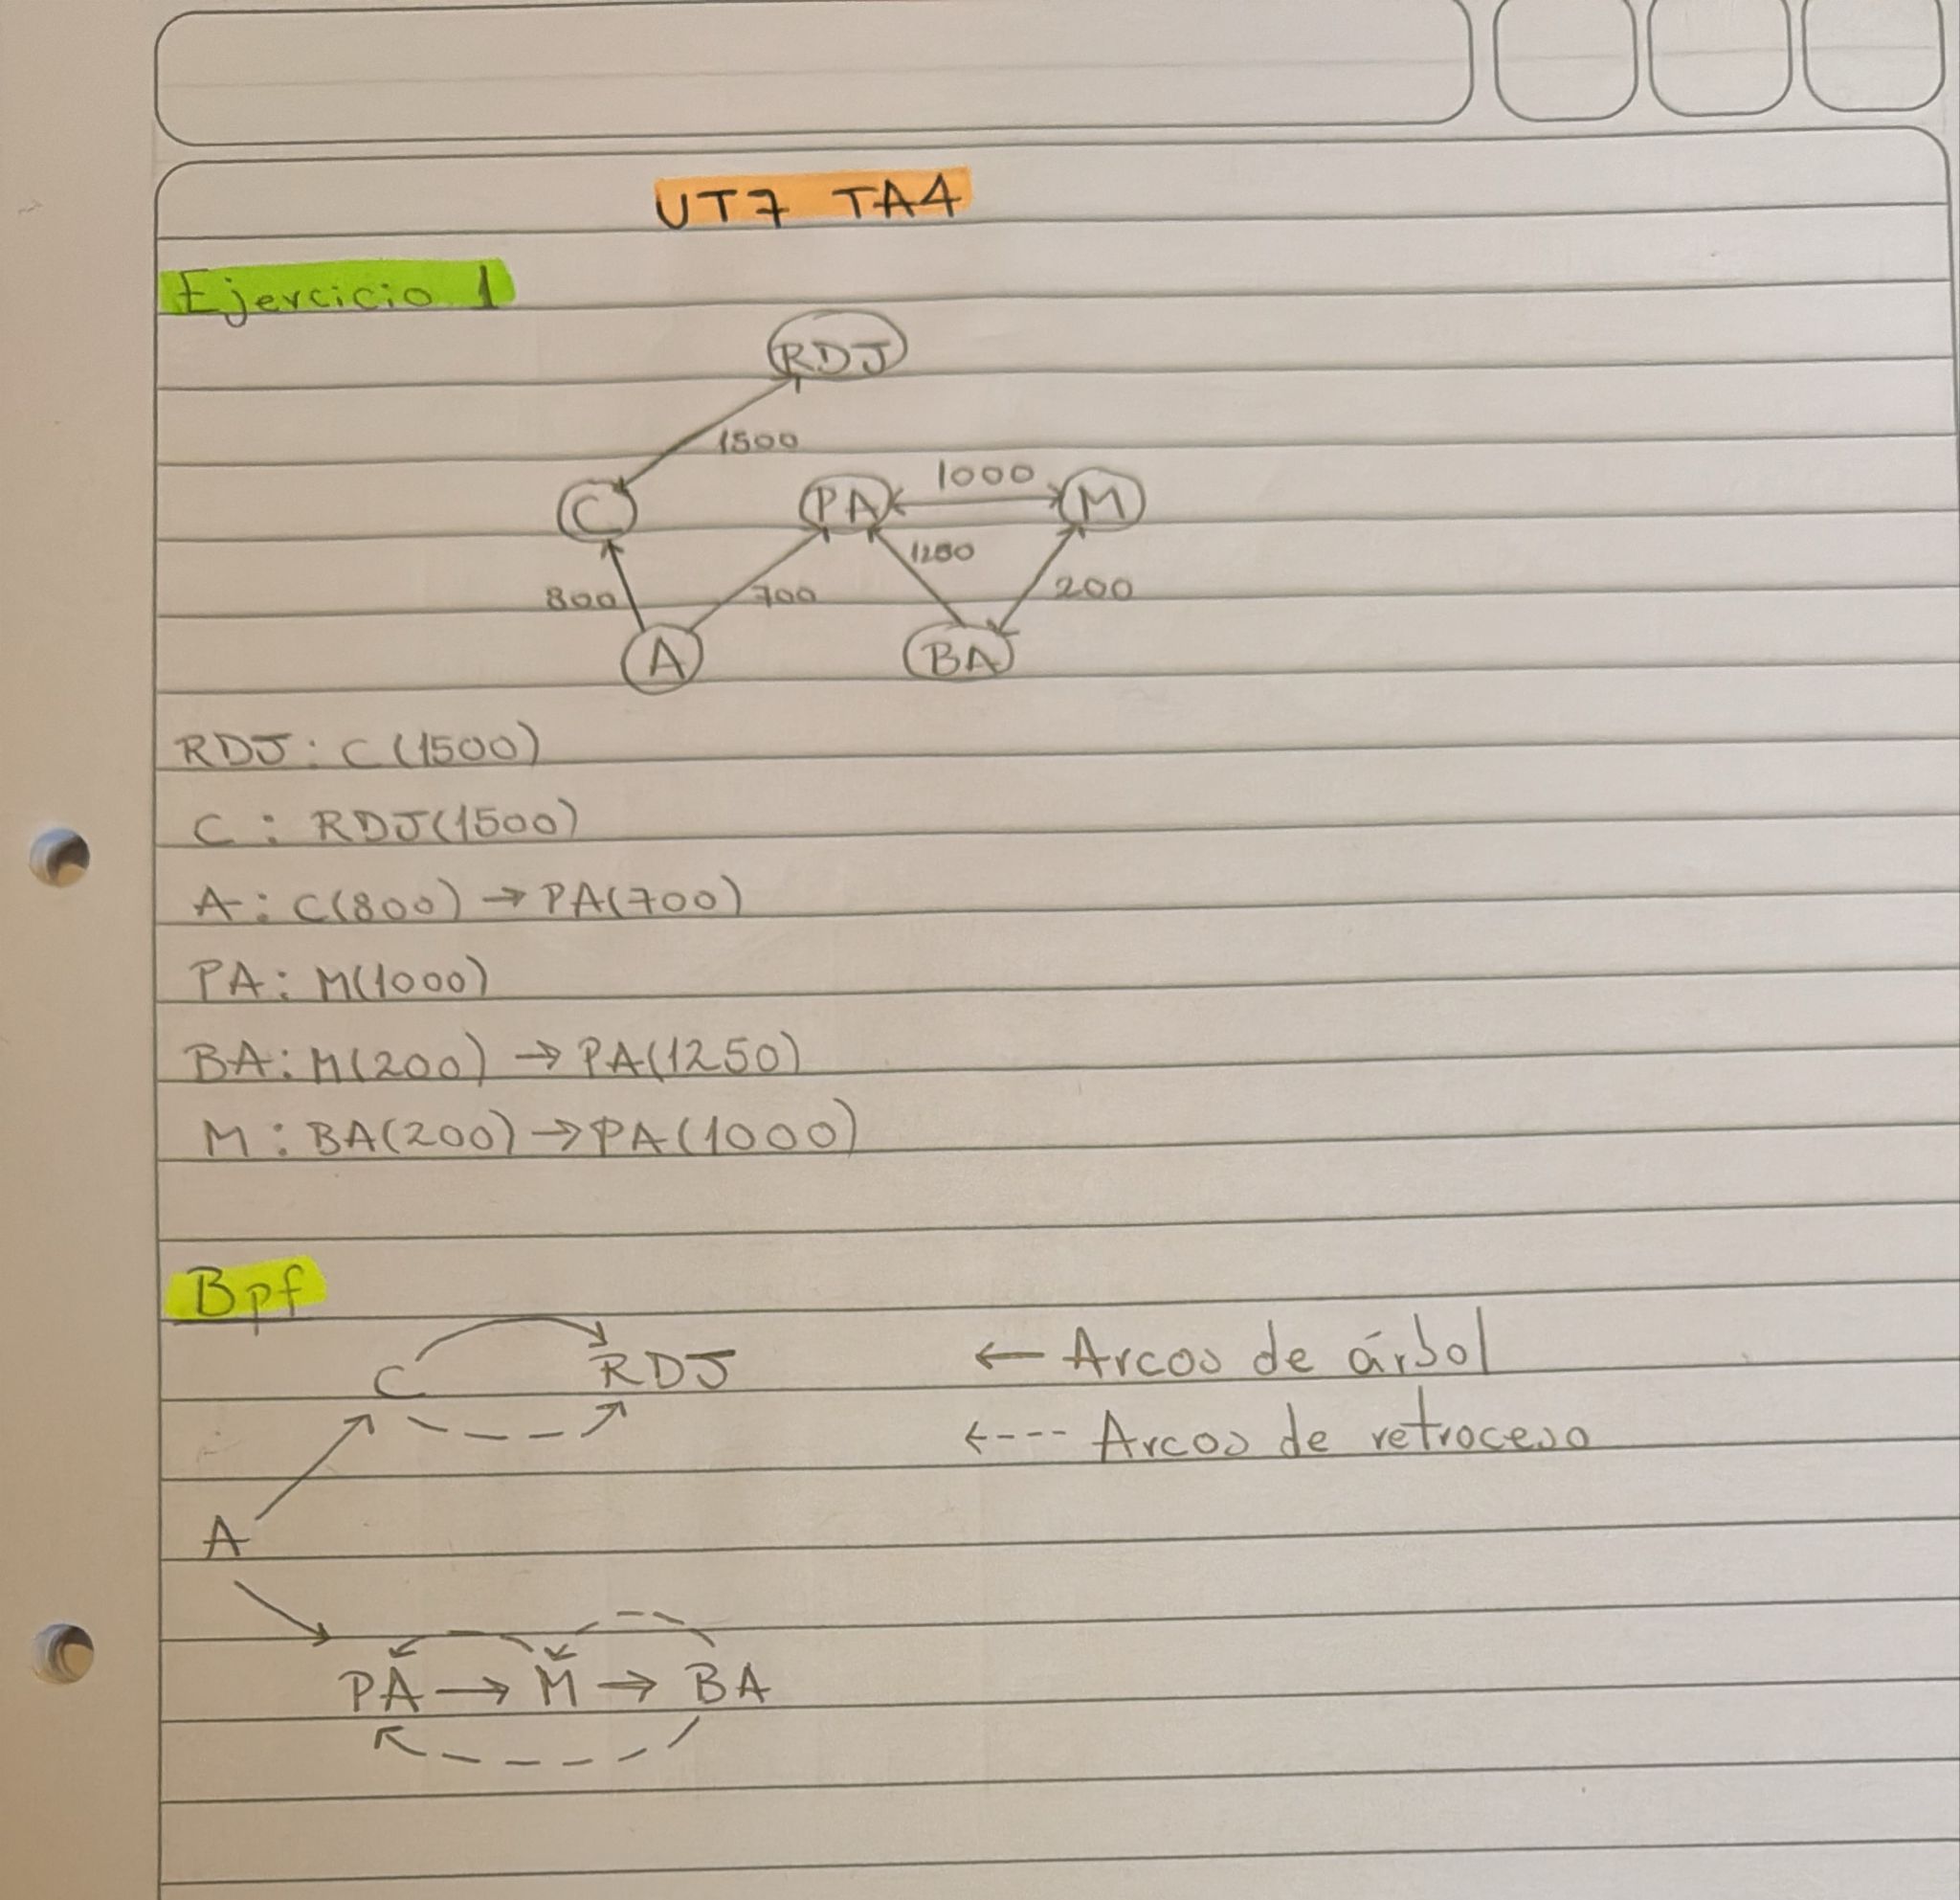 UT7 TA4
Ejercicio 1
RDJ
1500
C PA 1000 M
1250
800 700 200
A BA
RDJ: C(1500)
C: RDJ(1500)
A: C(800) → PA(700)
PA: M(1000)
BA: M(200) → PA(1250)
M: BA(200) → PA(1000)
Bpf
C RDJ ← Arcos de árbol
←---- Arcos de retroceso
A
PA → M → BA